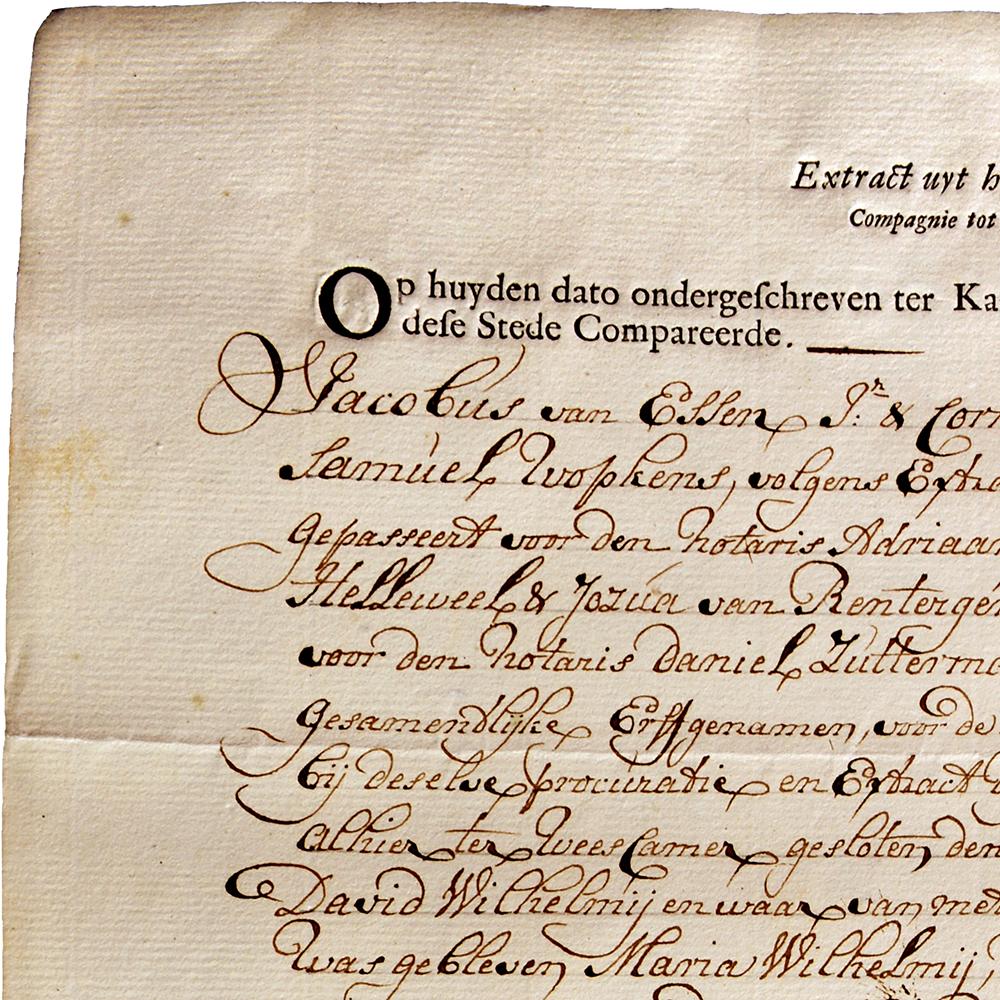 Extract uyt h
Compagnie tot
Op huyden dato ondergeſchreven ter Ka
deſe Stede Compareerde.
Jacobus van Essen Jr. & Corn
Samuel Wopkens, volgens Extra
Gepasseert voor den notaris Adriaan
Helleweel & Jozua van Renterge
voor den notaris Daniel Zutterma
Gesamendlijke Erffgenamen, voor de
bij deselve procuratie en Extract
Alhier ter Weescamer gesloten den
David Wilhelmij en waar van me
Was gebleven Maria Wilhelmij,